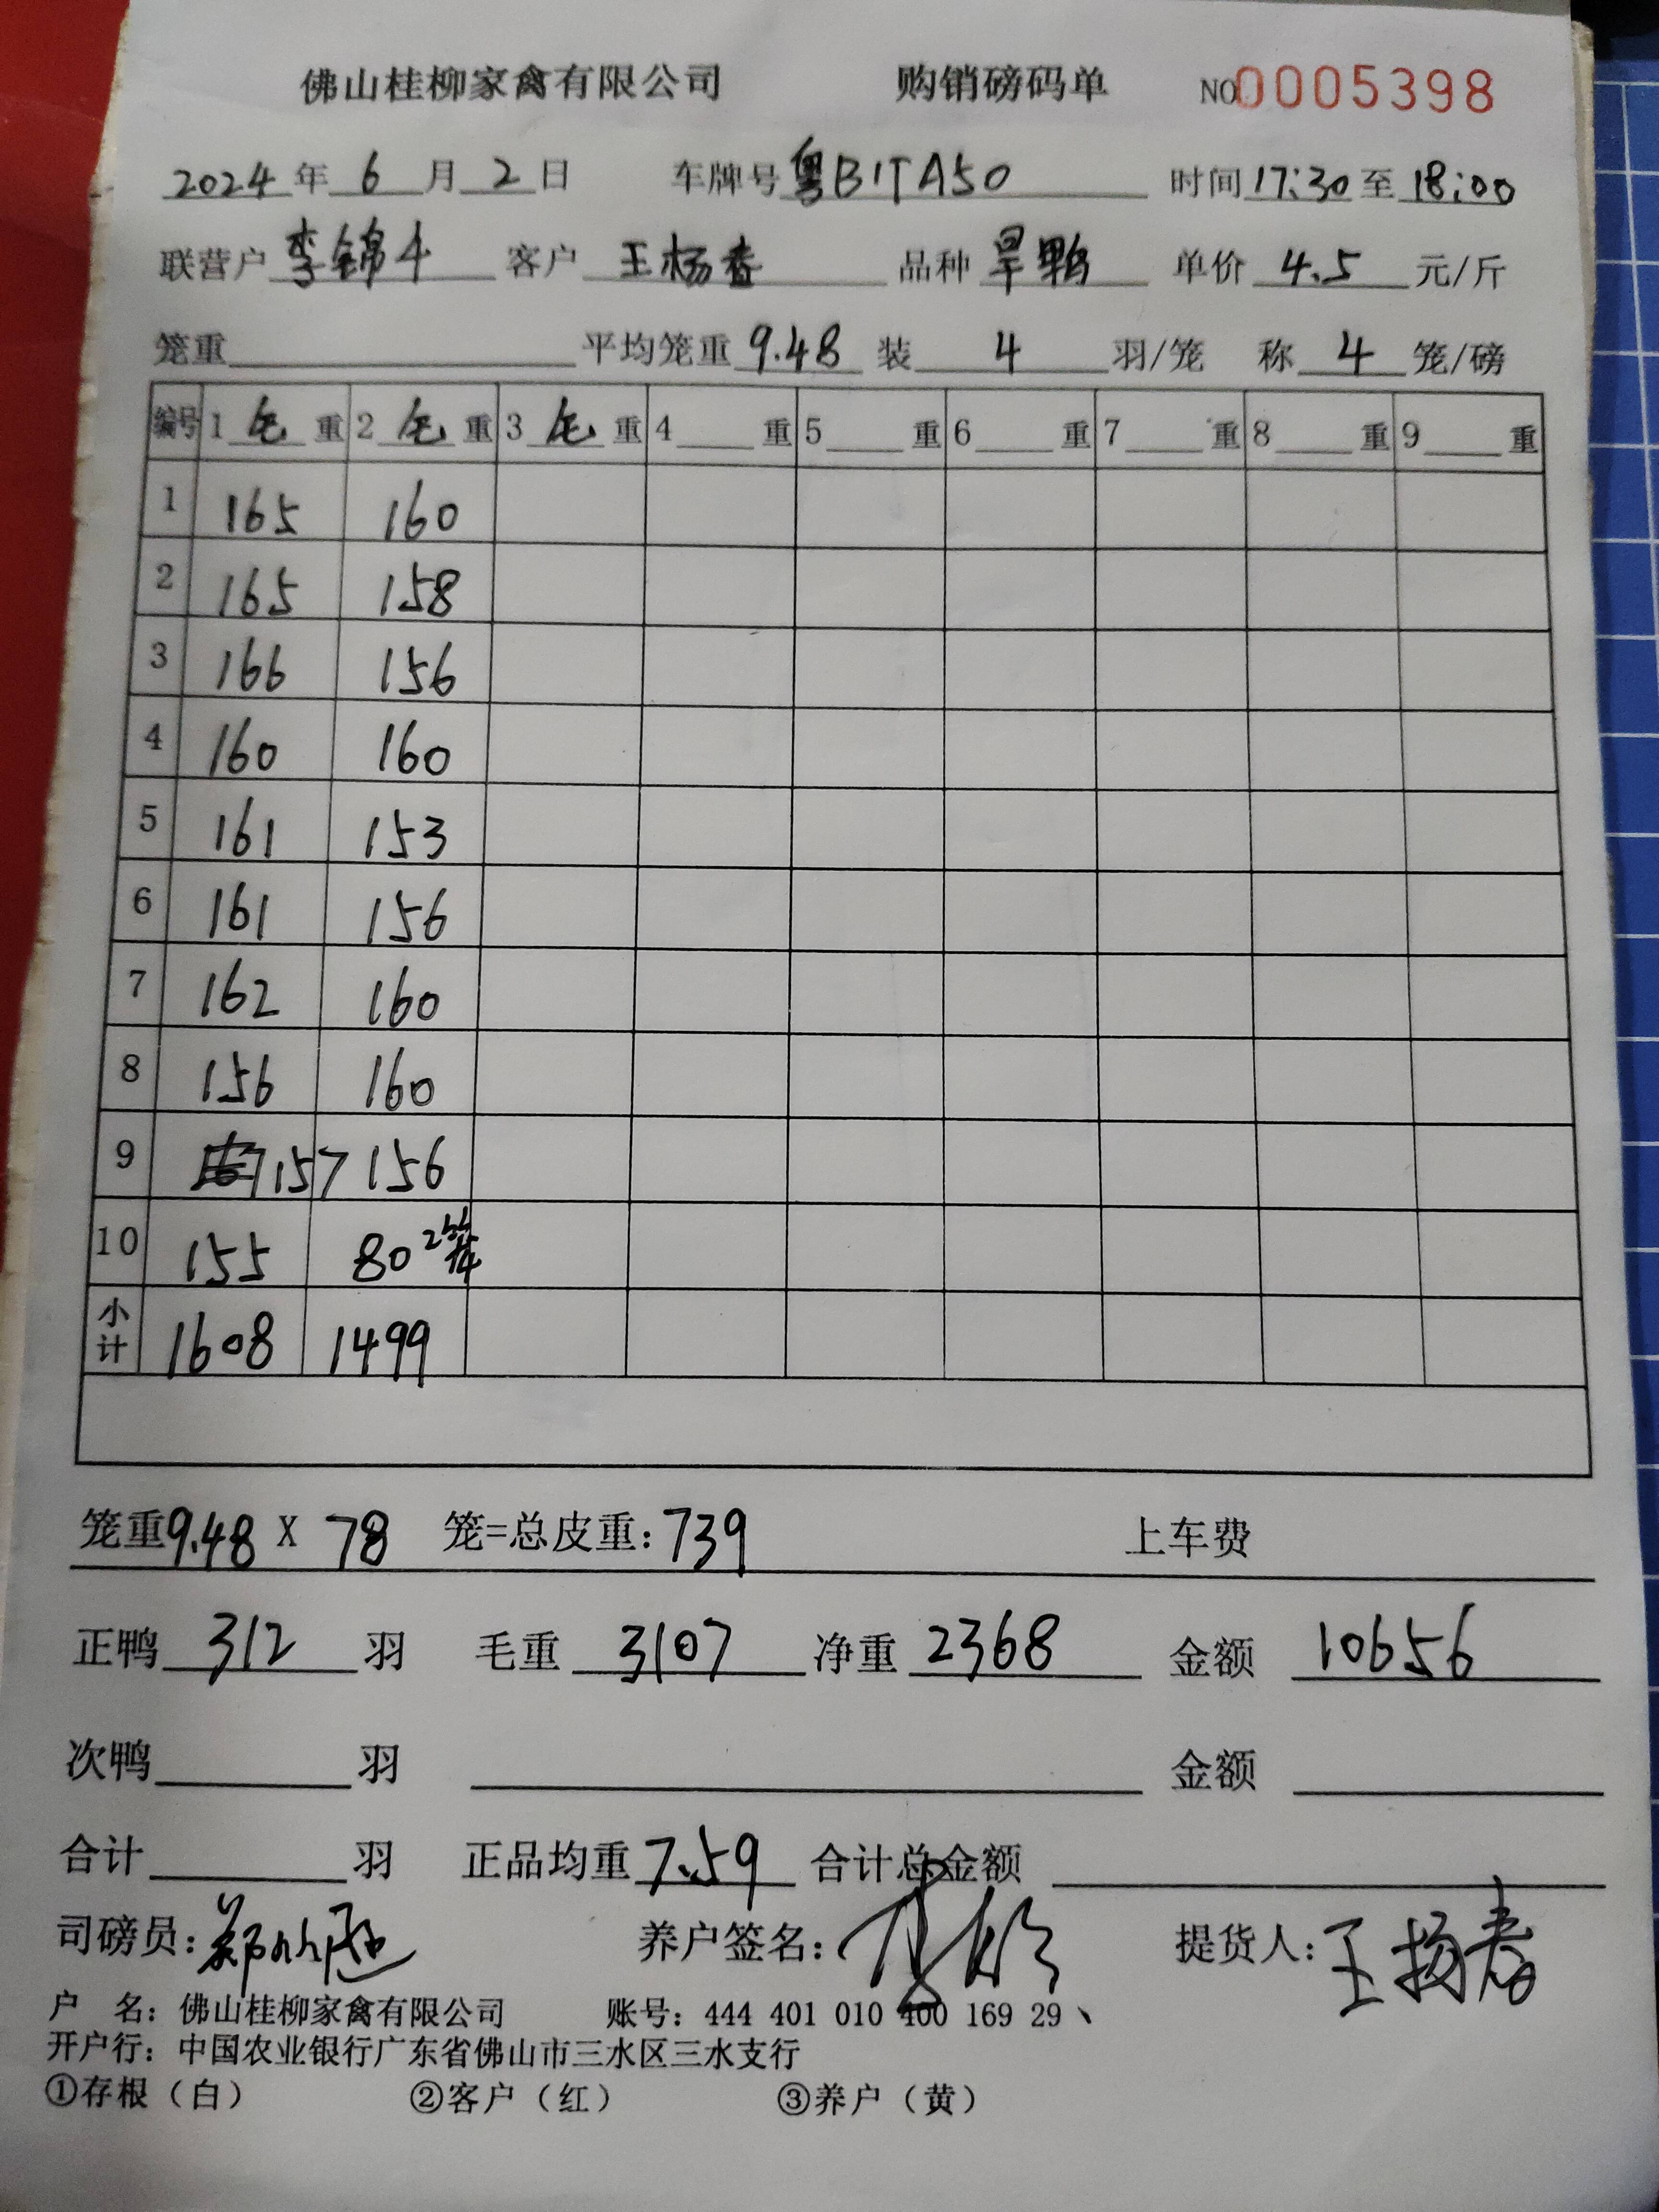 佛山桂柳家禽有限公司 购销磅码单 NO 0005398
2024 年 6 月 2 日 车牌号 粤B1TA50 时间 17:30 至 18:00
联营户 李锦斗 客户 王杨春 品种 旱鸭 单价 4.5 元/斤
笼重 平均笼重 9.48 装 4 羽/笼 称 4 笼/磅
编号 1 毛 重 2 毛 重 3 毛 重 4 重 5 重 6 重 7 重 8 重 9 重
1 165 160
2 165 158
3 166 156
4 160 160
5 161 153
6 161 156
7 162 160
8 156 160
9 157 156
10 155 80 2
小计 1608 1499
笼重 9.48 X 78 笼=总皮重: 739 上车费
正鸭 312 羽 毛重 3107 净重 2368 金额 10656
次鸭 羽 金额
合计 羽 正品均重 7.59 合计总金额
司磅员: 养户签名: 提货人: 王扬春
户 名: 佛山桂柳家禽有限公司 账号: 444 401 010 400 169 29
开户行: 中国农业银行广东省佛山市三水区三水支行
①存根（白） ②客户（红） ③养户（黄）